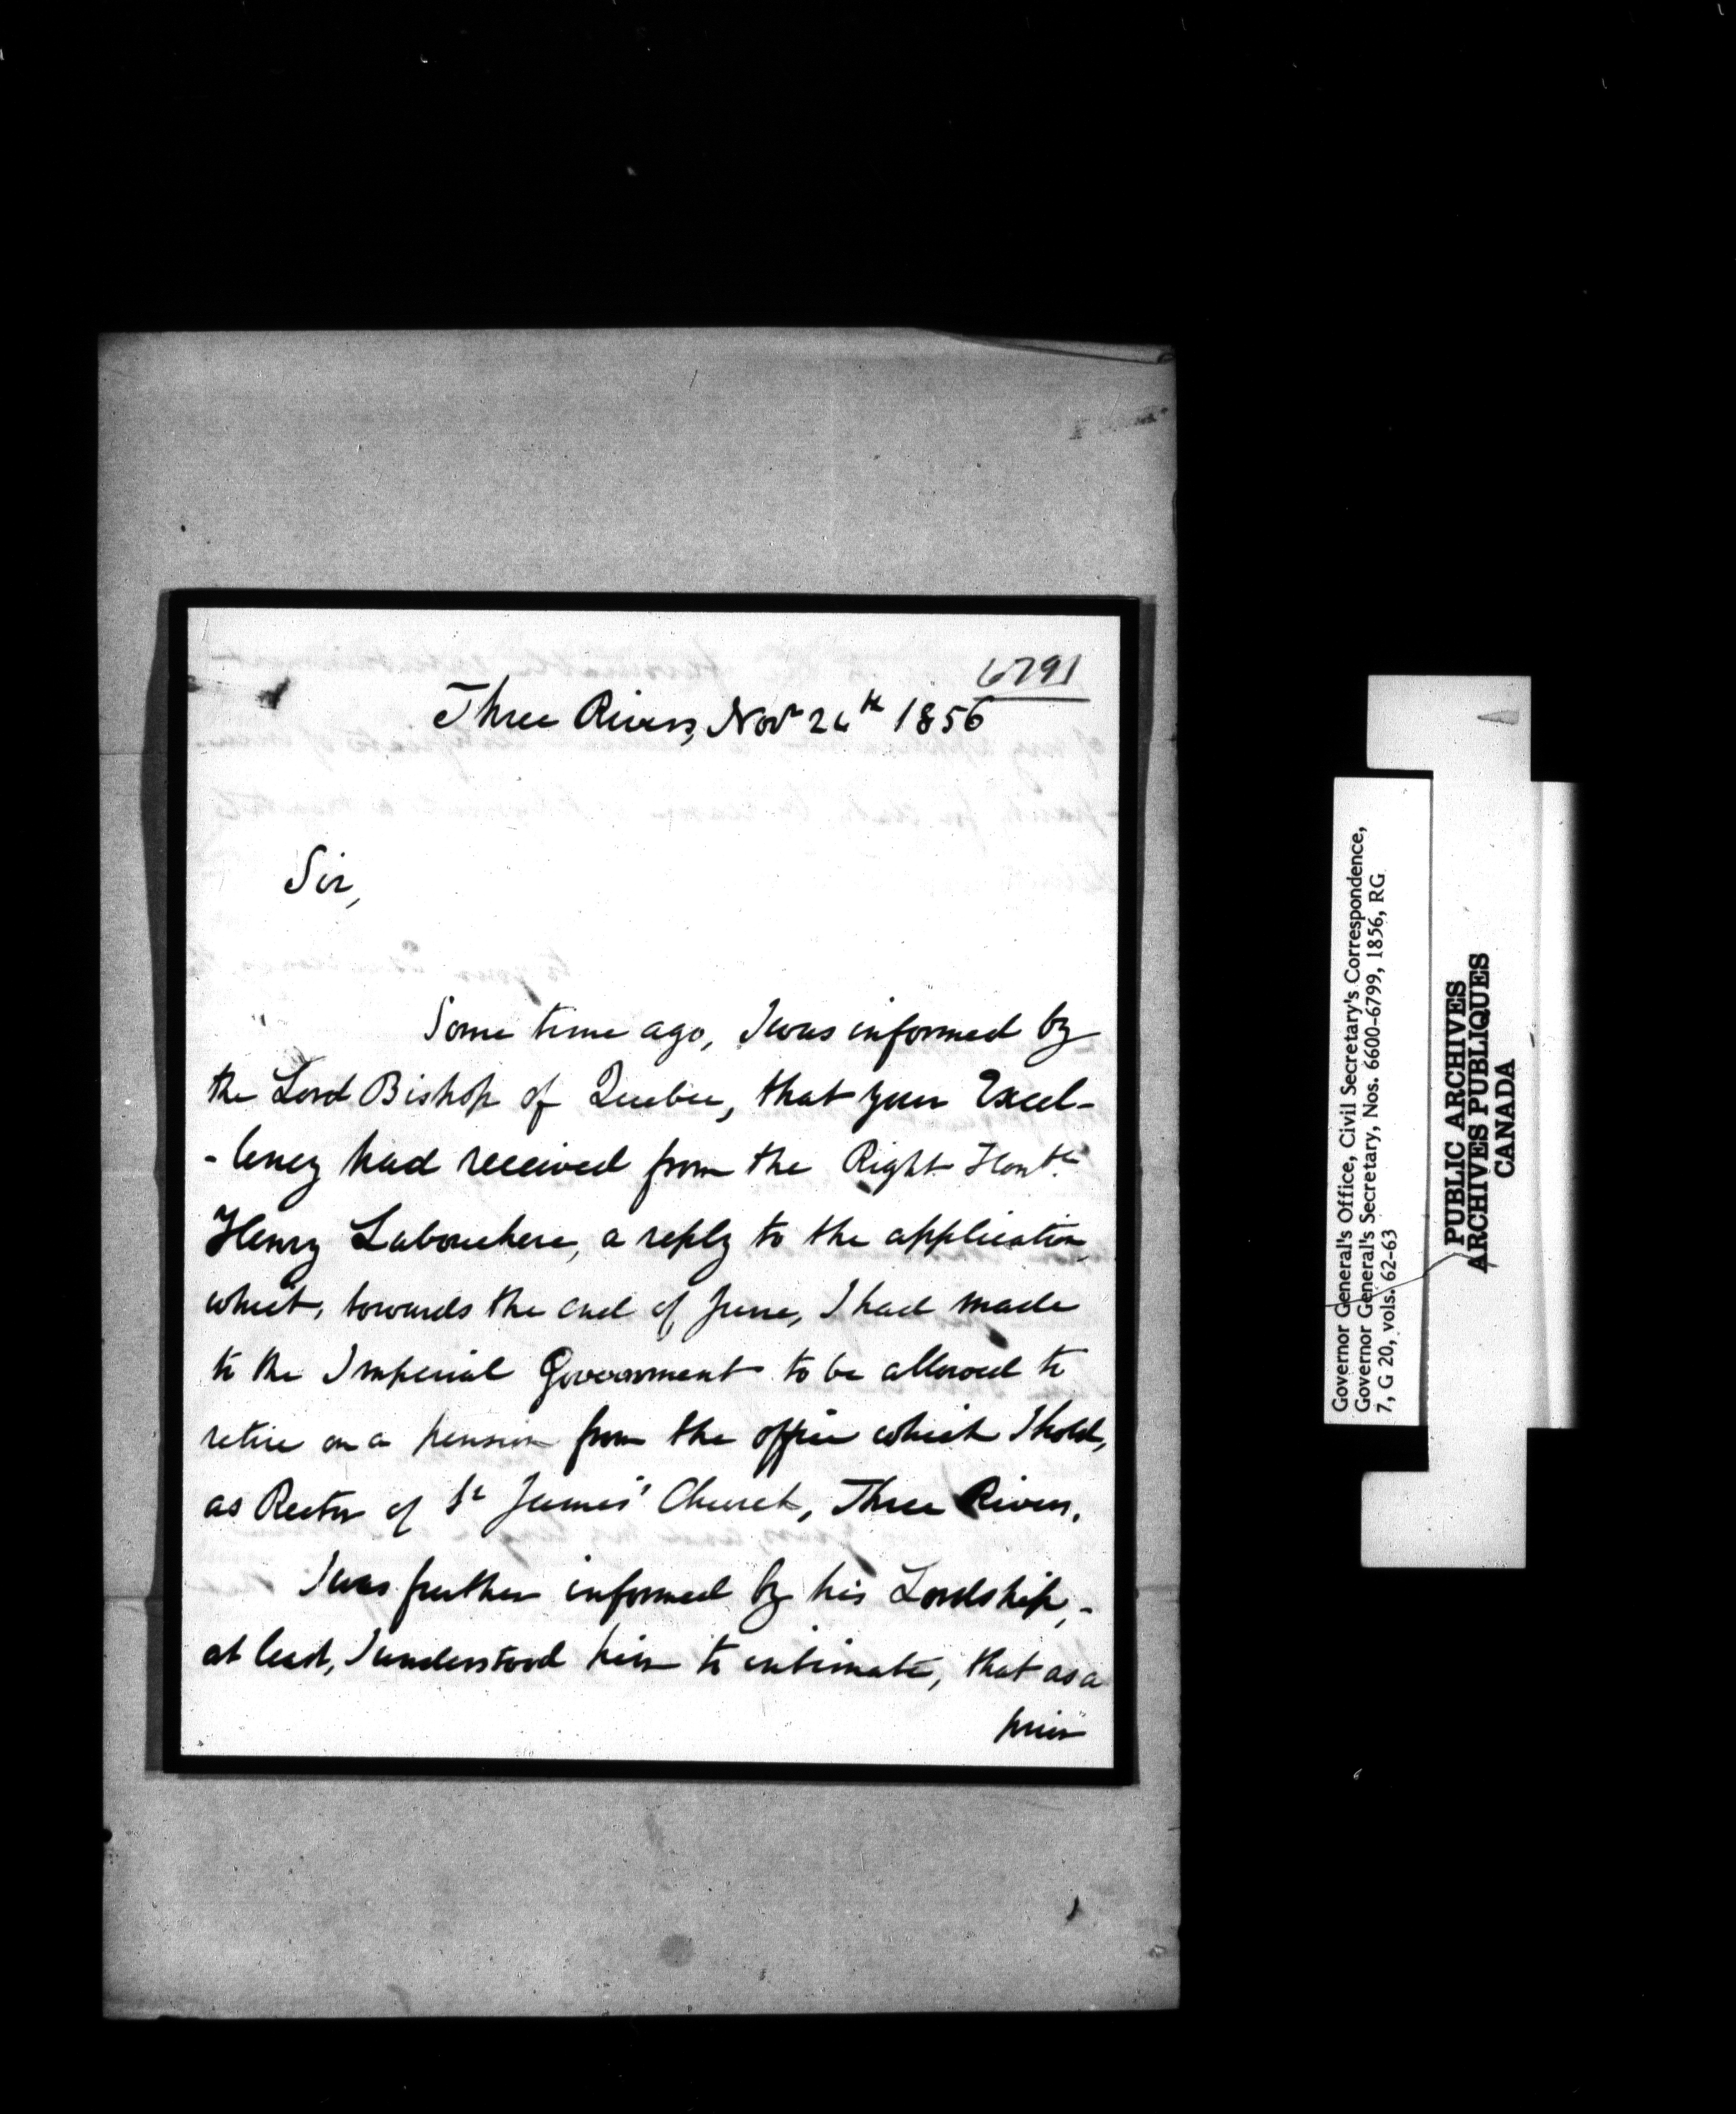 6791
Three Rivers, Novr 26th 1856
Sir,
Some time ago, I was informed by
the Lord Bishop of Quebec, that your Excel-
-lency had received from the Right Honble
Henry Labouchere, a reply to the application,
which, towards the end of June, I had made
to the Imperial Government to be allowed to
retire on a pension from the office which I hold,
as Rector of St James' Church, Three Rivers.
I was further informed by his Lordship, -
at least, I understood him to intimate, that as a
Governor General's Office, Civil Secretary's Correspondence,
Governor General's Secretary, Nos. 6600-6799, 1856, RG
7, G 20, vols. 62-63
PUBLIC ARCHIVES
ARCHIVES PUBLIQUES
CANADA